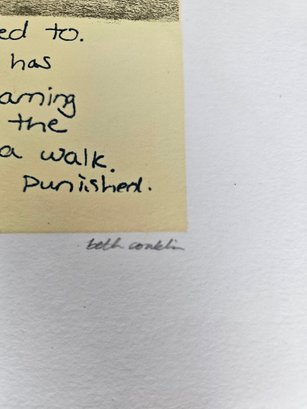 ed to.
has
arning
the
a walk.
Punished.
beth conklin